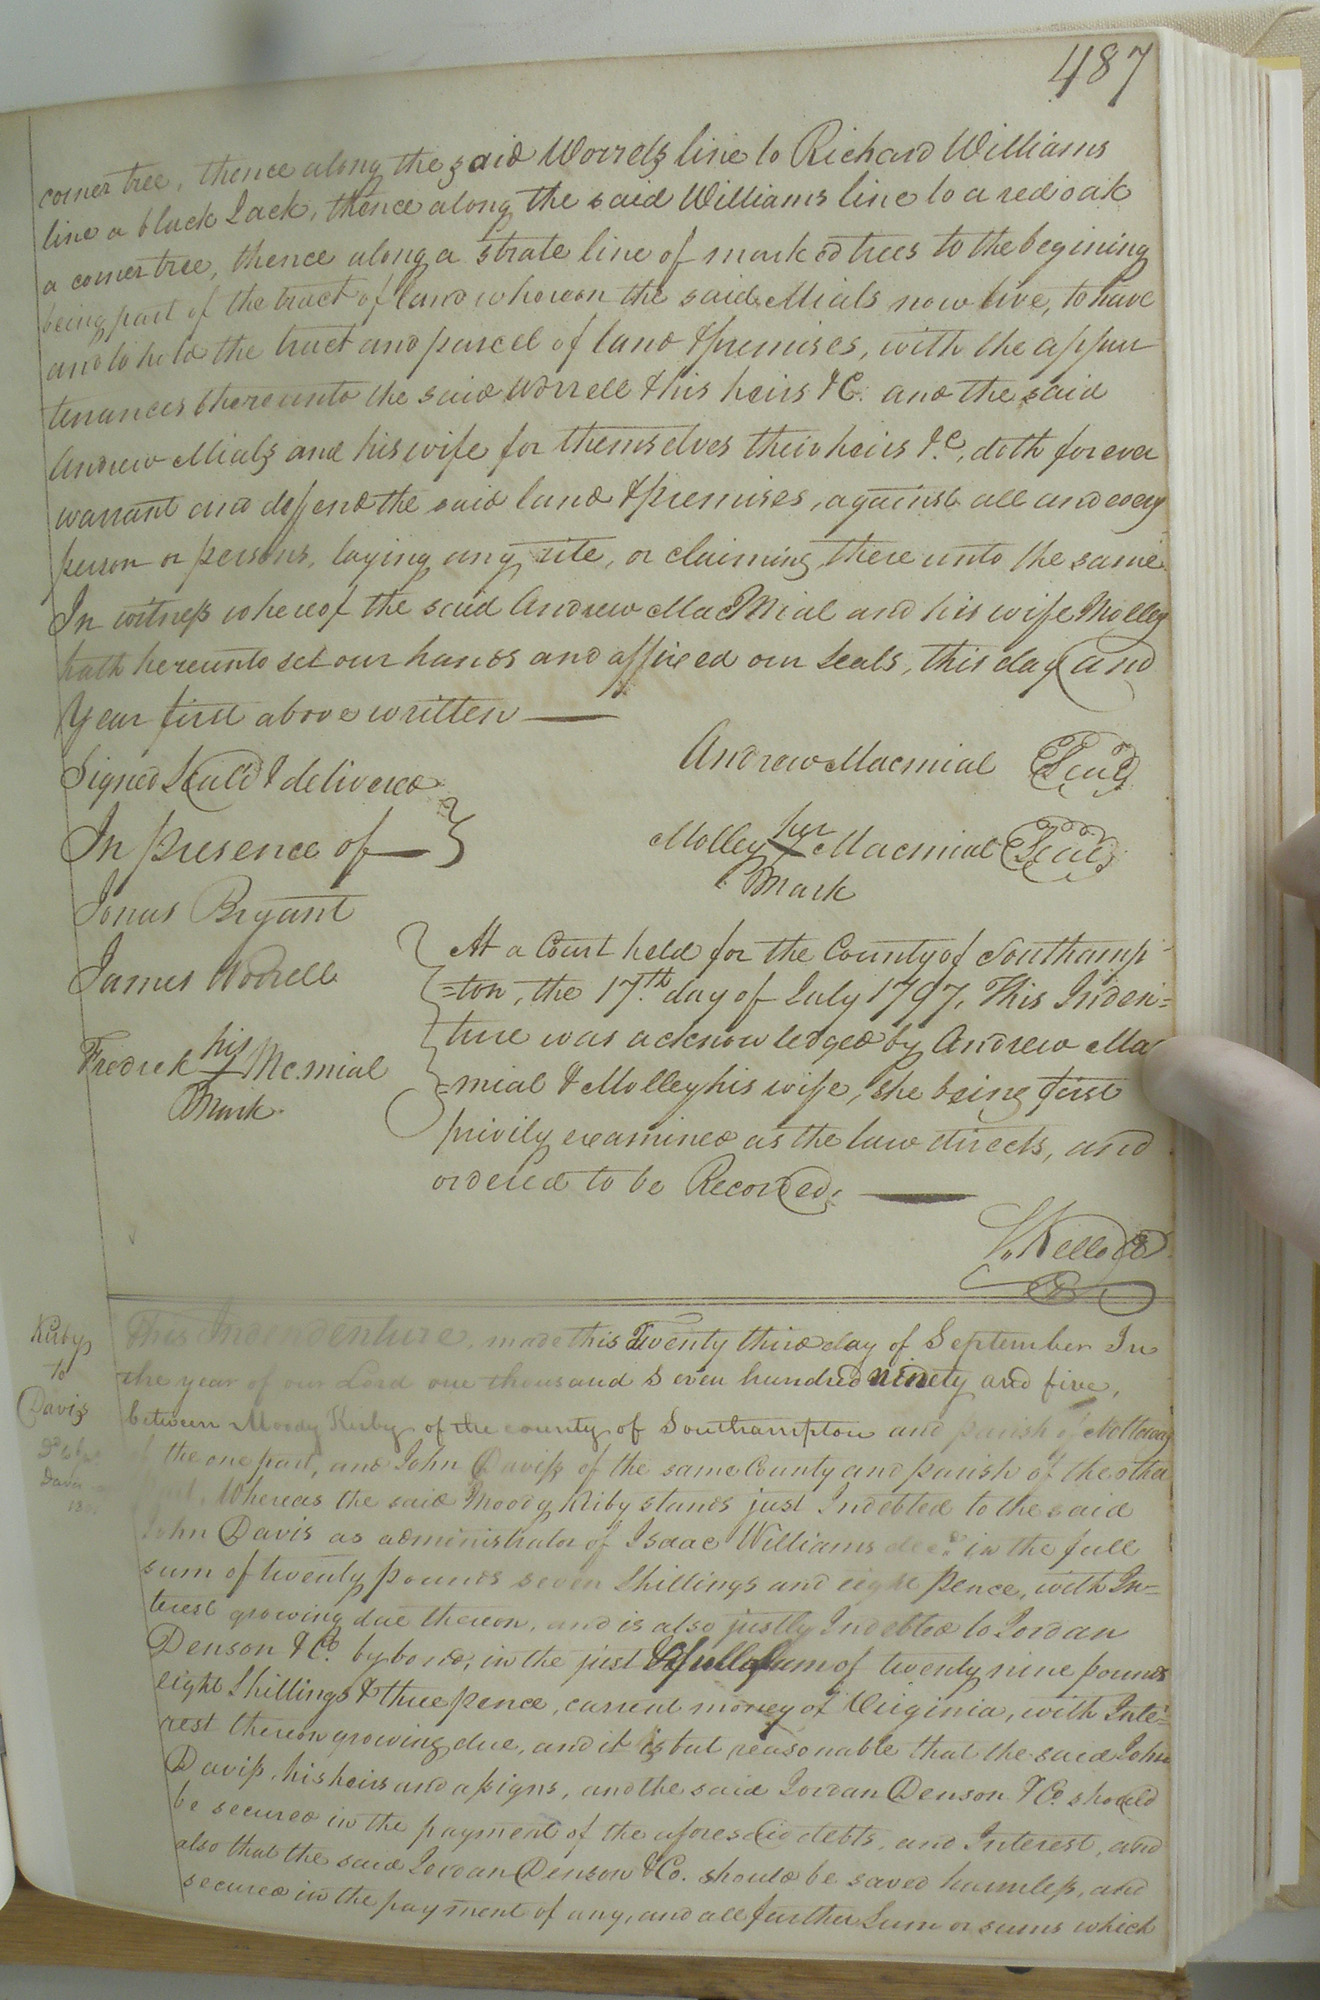 487
corner tree, thence along the said Worrels line to Richard Williams
line a black Jack, thence along the said Williams line to a red oak
a corner tree, thence along a strate line of marked trees to the begining
being part of the tract of land whereon the said Mials now live, to have
and to hold the tract and parcel of land & premises, with the appur-
tenances thereunto the said Worrell & his heirs &C. and the said
Andrew Mials and his wife for themselves their heirs &C, doth forever
warrant and deffend the said land & premises, against all and every
person or persons, laying any rite, or claiming there unto the same
In witness whereof the said Andrew MacMial and his wife Molley
hath hereunto set our hands and affixed our Seals, this day and
Year first above written
Andrew Macmial Seal
Signed Seald & delivered
In presence of
Molley her Macmial Seal
Mark
Jonas Bryant
James Worrell
Fredrek his Mc.mial
Mark
At a Court held for the County of Southamp-
=ton, the 17th. day of July 1797, This Inden=
ture was acknowledged by Andrew Mac
=mial & Molley his wife, she being first
privily examined as the law directs, and
ordered to be Recorded.
S. Kello
Kirby
to
Davis
This Indendenture, made this Twenty third day of September In
the year of our Lord one thousand Seven hundred ninety and five,
between Moody Kirby of the county of Southampton and parish of Nottoway
of the one part, and John Daviss of the same County and parish of the other
part, Whereas the said Moody Kirby stands just Indebted to the said
John Davis as administrator of Isaac Williams decd. in the full
sum of twenty pounds seven Shillings and eight pence, with In-
terest growing due thereon, and is also justly Indebted to Jordan
Denson & Co. by bond, in the just & full sum of twenty nine pounds
eight Shillings & three pence, current money of Virginia, with Inte=
rest thereon growing due, and it is but reasonable that the said John
Daviss, his heirs and assigns, and the said Jordan Denson & Co. should
be secured in the payment of the aforesaid debts, and Interest, and
also that the said Jordan Denson & Co. should be saved harmless, and
secured in the payment of any, and all further Sum or sums which